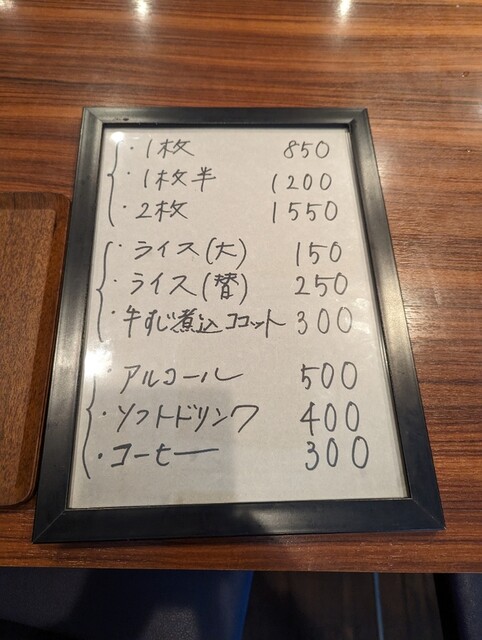 ・1枚 850
・1枚半 1200
・2枚 1550
・ライス(大) 150
・ライス(替) 250
・牛すじ煮込ココット 300
・アルコール 500
・ソフトドリンク 400
・コーヒー 300